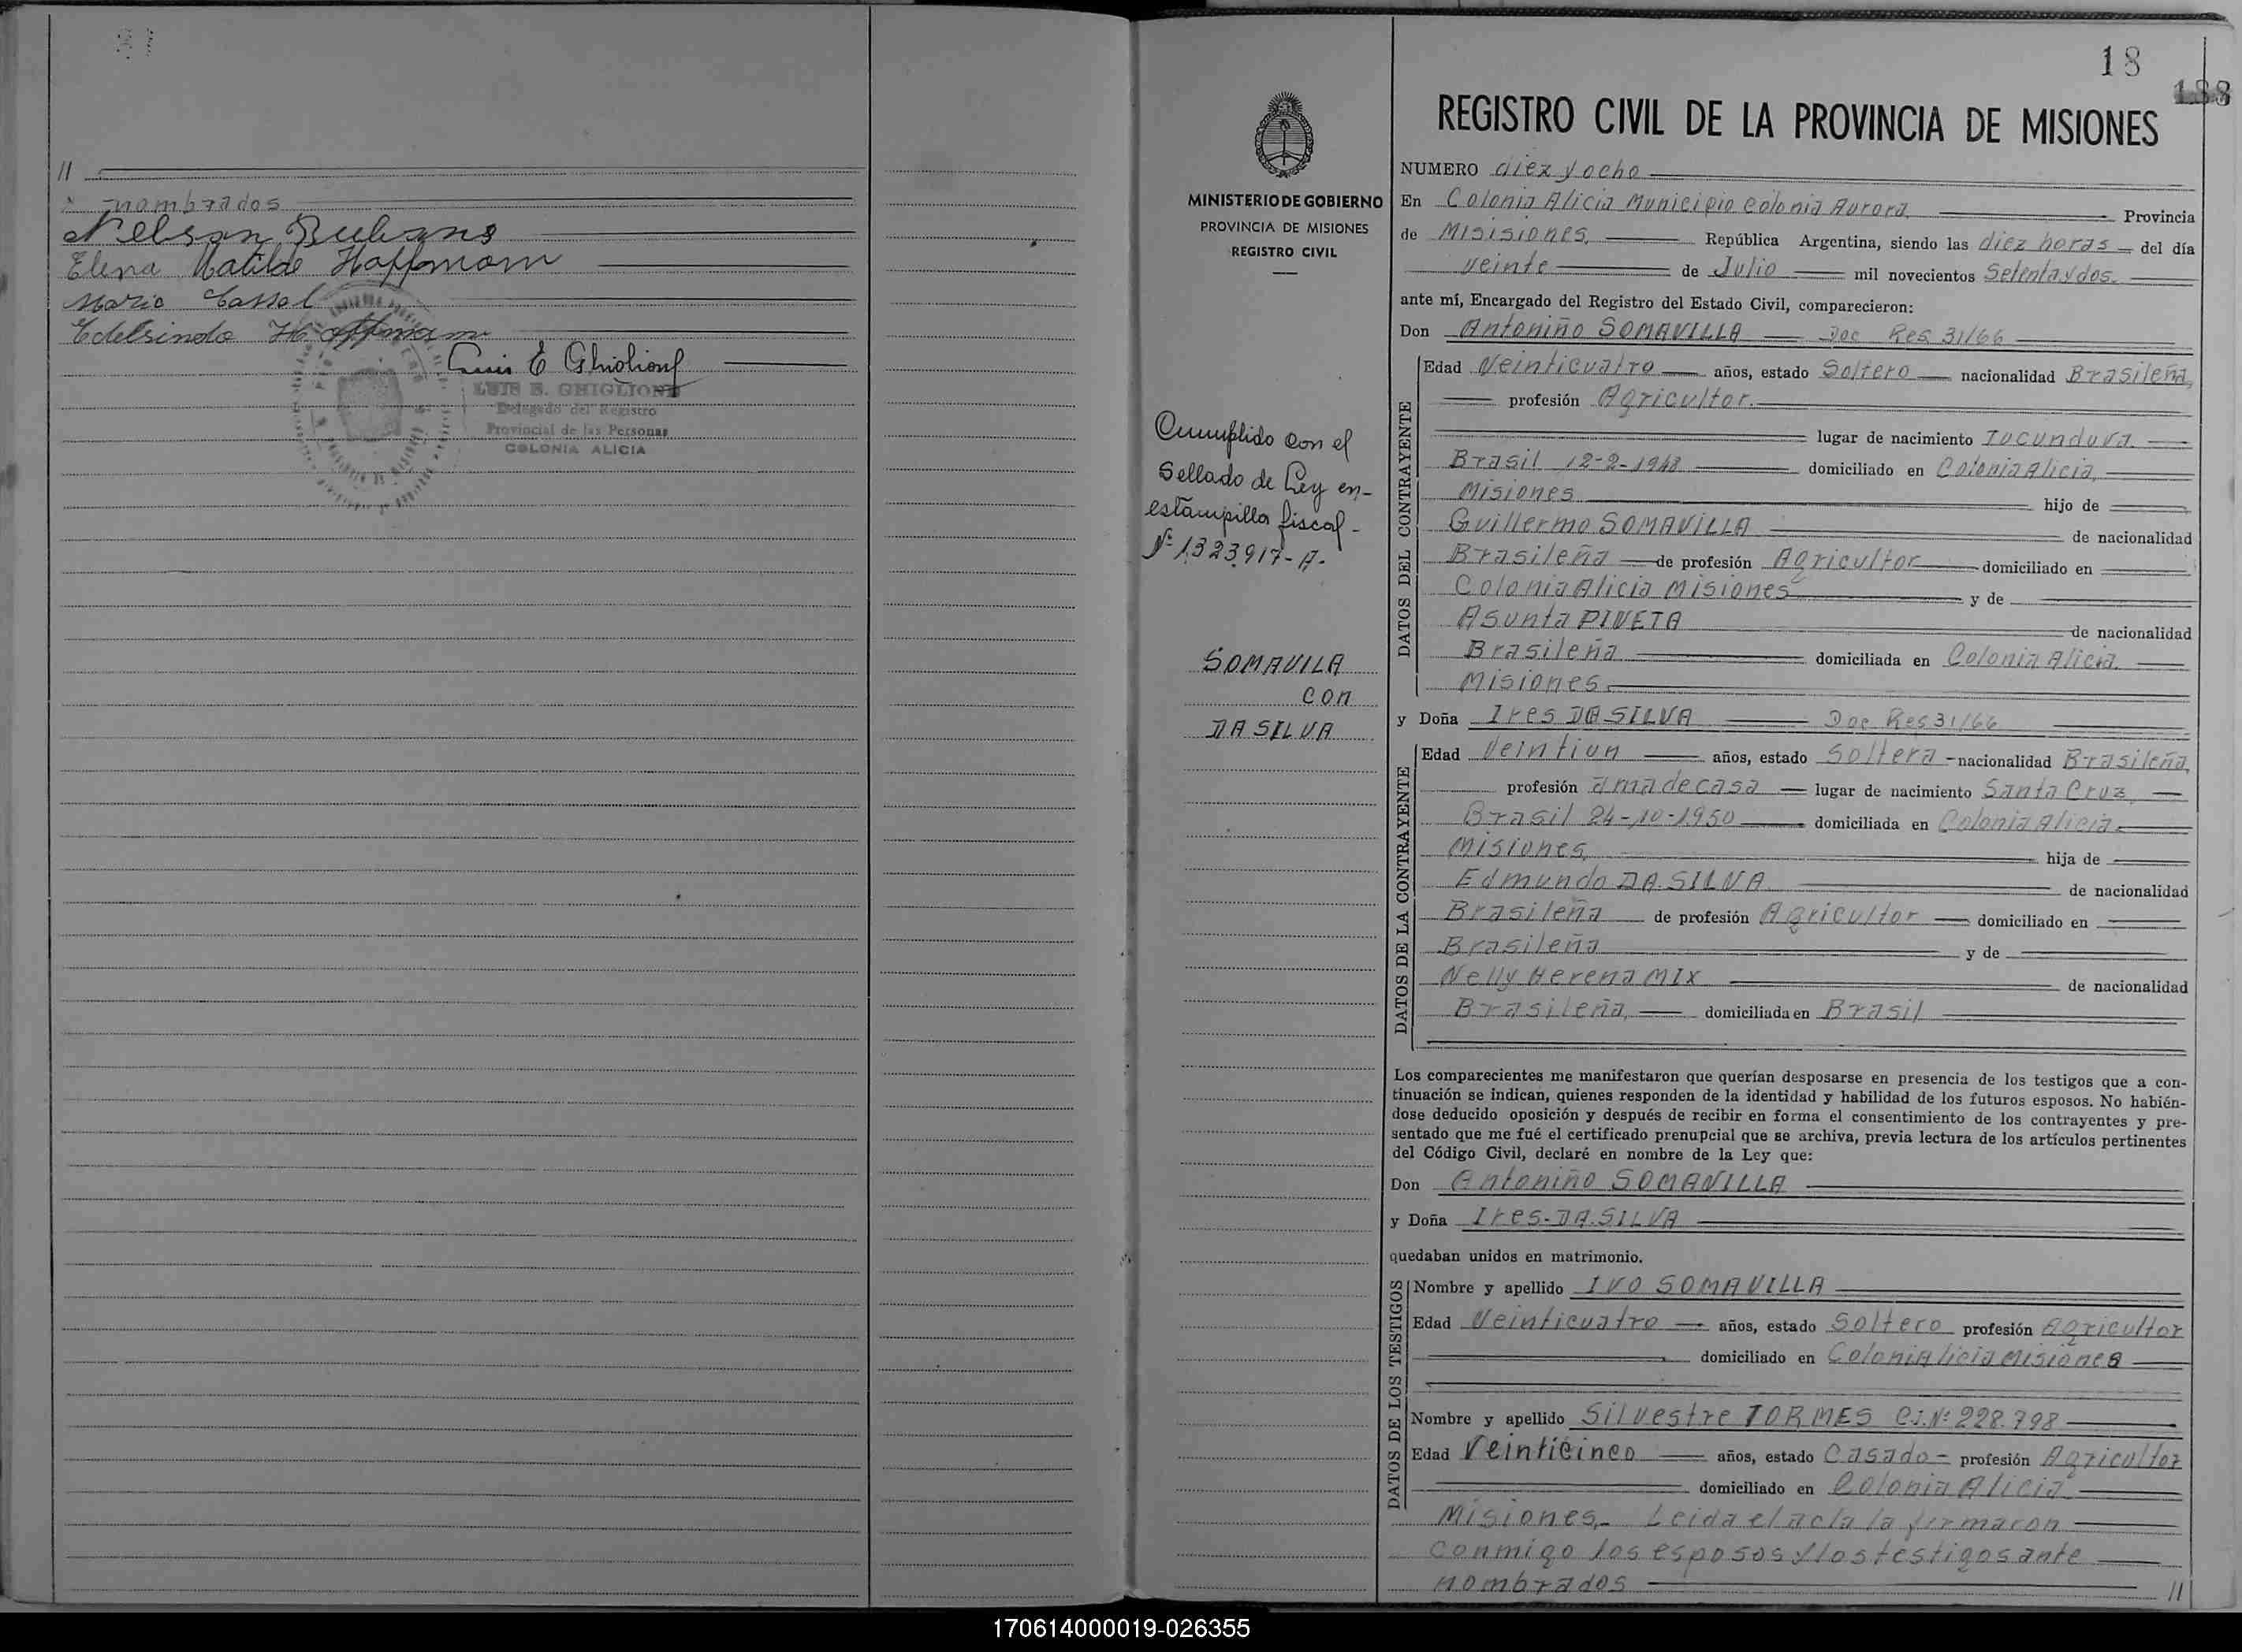 //
nombrados
Nelson
Elena Matilde Hoffmann
Mario Cassol
Edelsindo Hoffmann
Luis E Ghiglione
LUIS E. GHIGLIONE
Delegado del Registro
Provincial de las Personas
COLONIA ALICIA
18
188
REGISTRO CIVIL DE LA PROVINCIA DE MISIONES
MINISTERIO DE GOBIERNO
PROVINCIA DE MISIONES
REGISTRO CIVIL
Cumuplido con el
Sellado de Ley en-
estampilla fiscal-
Nº 1.323.917-A-
SOMAVILA
con
DA SILVA
NUMERO diez y ocho
En Colonia Alicia Municipio Colonia Aurora, Provincia
de Misisiones, República Argentina, siendo las diez horas del día
veinte de Julio mil novecientos Setenta y dos.
ante mí, Encargado del Registro del Estado Civil, comparecieron:
Don Antoniño SOMAVILLA Doc Res 31/66
DATOS DEL CONTRAYENTE
Edad Veinticuatro años, estado Soltero nacionalidad Brasileña,
profesión Agricultor.
lugar de nacimiento Tucunduva.
Brasil 12-2-1948 domiciliado en Colonia Alicia,
Misiones hijo de
Guillermo SOMAVILLA de nacionalidad
Brasileña de profesión Agricultor domiciliado en
Colonia Alicia Misiones y de
Asunta PIVETA de nacionalidad
Brasileña domiciliada en Colonia Alicia.
Misiones.
y Doña Ires DA SILVA Doc Res 31/66
DATOS DE LA CONTRAYENTE
Edad Veintiun años, estado soltera - nacionalidad Brasileña,
profesión ama de casa lugar de nacimiento Santa Cruz,
Brasil 24-10-1950 domiciliada en Colonia Alicia.
Misiones, hija de
Edmundo DA.SILVA de nacionalidad
Brasileña de profesión Agricultor domiciliado en
Brasileña y de
Nelly Herena MIX de nacionalidad
Brasileña, domiciliada en Brasil
Los comparecientes me manifestaron que querían desposarse en presencia de los testigos que a con-
tinuación se indican, quienes responden de la identidad y habilidad de los futuros esposos. No habién-
dose deducido oposición y después de recibir en forma el consentimiento de los contrayentes y pre-
sentado que me fué el certificado prenupcial que se archiva, previa lectura de los artículos pertinentes
del Código Civil, declaré en nombre de la Ley que:
Don Antoniño SOMAVILLA
y Doña Ires-DA.SILVA
quedaban unidos en matrimonio.
DATOS DE LOS TESTIGOS
Nombre y apellido IVO SOMAVILLA
Edad Veinticuatro años, estado Soltero profesión Agricultor
domiciliado en ColoniAlicia Misiones
Nombre y apellido Silvestre TORMES C.I.Nº 228.798
Edad Veinticinco años, estado Casado - profesión Agricultor
domiciliado en Colonia Alicia
Misiones,- Leida el acta la firmaron
conmigo los esposos y los testigos ante
nombrados //
170614000019-026355